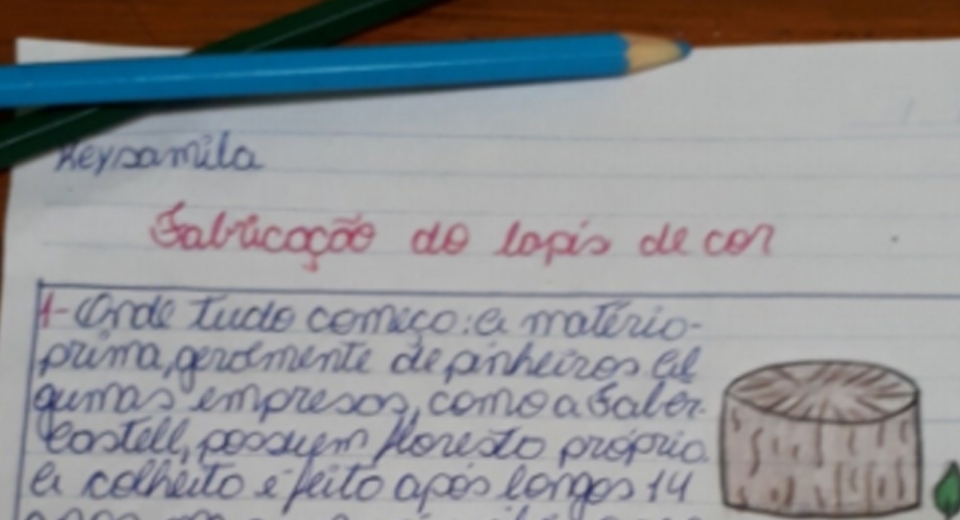 Keysamila
Fabricação do lapis de cor
1- Onde tudo começo: a matério-
prima, geralmente de pinheiros al
gumas empresas, como a Faber-
Castell, possuem floresta própria
a colheita é feito após longos 14
anos